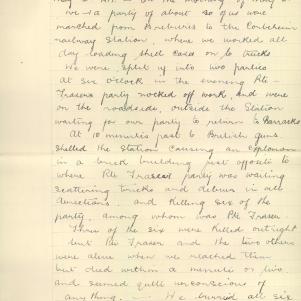 we - a party of about 30 of us were
marched from to the
railway station, where we worked all
day loading shell cases on to trucks
We were split up into two parties
at six o'clock in the evening Pte
Frasers party nocked off work, and were
on the roadside, outside the Station
waiting for our party to return to Barracks
At 10 minutes past 6 British guns
shelled the Station causing an Explosion
in a brick building just opposite to
where Pte Frasers party was waiting
scattering bricks and debris in all
directions and killing six of the
party, among whom was Pte Fraser.
Three of the six were killed outright
but Pte Fraser and the two others
were alive when we reached them
but died within a minute or two
and seemed quite unconscious of
anything. We buried all six